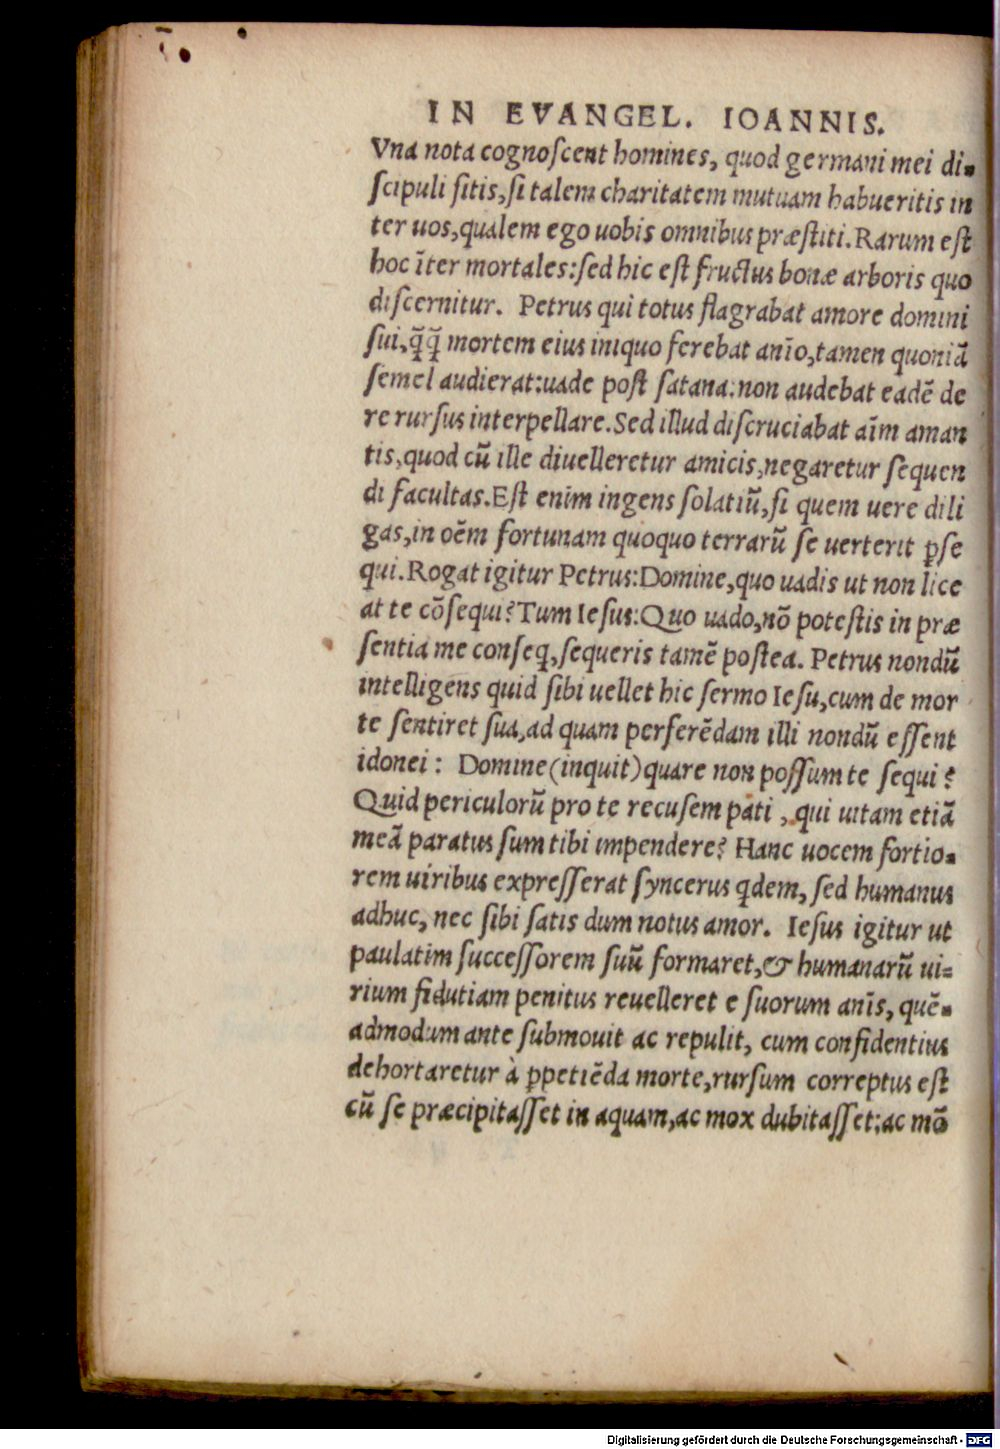 IN EVANGEL. IOANNIS.
Vna nota cognoſcent homines, quod germani mei di-
ſcipuli ſitis,ſi talem charitatem mutuam habueritis in
ter uos,qualem ego uobis omnibus præſtiti.Rarum eſt
hoc īter mortales:ſed hic eſt fructus bonæ arboris quo
diſcernitur. Petrus qui totus flagrabat amore domini
ſui,q̄q̄ mortem eius iniquo ferebat anīo,tamen quoniā
ſemel audierat:uade poſt ſatana:non audebat eadē de
re rurſus interpellare.Sed illud diſcruciabat aīm aman
tis,quod cū ille diuelleretur amicis,negaretur ſequen
di facultas.Eſt enim ingens ſolatiū,ſi quem uere dili
gas,in oēm fortunam quoquo terrarū ſe uerterit ꝑſe
qui.Rogat igitur Petrus:Domine,quo uadis ut non lice
at te cōſequi?Tum Ieſus:Quo uado,nō poteſtis in præ
ſentia me conſeq,ſequeris tamē poſtea. Petrus nondū
intelligens quid ſibi uellet hic ſermo Ieſu,cum de mor
te ſentiret ſua,ad quam perferēdam illi nondū eſſent
idonei: Domine(inquit)quare non poſſum te ſequi?
Quid periculorū pro te recuſem pati ,qui uitam etiā
meā paratus ſum tibi impendere? Hanc uocem fortio-
rem uiribus expreſſerat ſyncerus qdem, ſed humanus
adhuc, nec ſibi ſatis dum notus amor. Ieſus igitur ut
paulatim ſucceſſorem ſuū formaret,& humanarū ui-
rium fidutiam penitus reuelleret e ſuorum anīs, quē-
admodum ante ſubmouit ac repulit, cum confidentius
dehortaretur à ꝑpetiēda morte,rurſum correptus eſt
cū ſe præcipitaſſet in aquam,ac mox dubitaſſet:ac mō
Digitalisierung gefördert durch die Deutsche Forschungsgemeinschaft - DFG